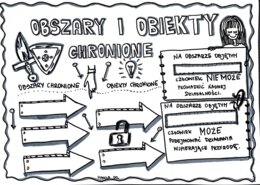 OBSZARY I OBIEKTY
CHRONIONE
OBSZARY CHRONIONE
OBIEKTY CHRONIONE
NA OBSZARZE OBJĘTYM
CZŁOWIEK NIE MOŻE
PROWADZIĆ ŻADNEJ
DZIAŁALNOŚCI.
NA OBSZARZE OBJĘTYM
CZŁOWIEK MOŻE
PODEJMOWAĆ DZIAŁANIA
WSPIERAJĄCE PRZYRODĘ.